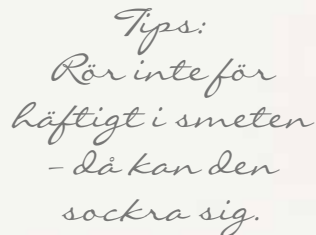 Tips:
Rör inte för
häftigt i smeten
– då kan den
sockra sig.